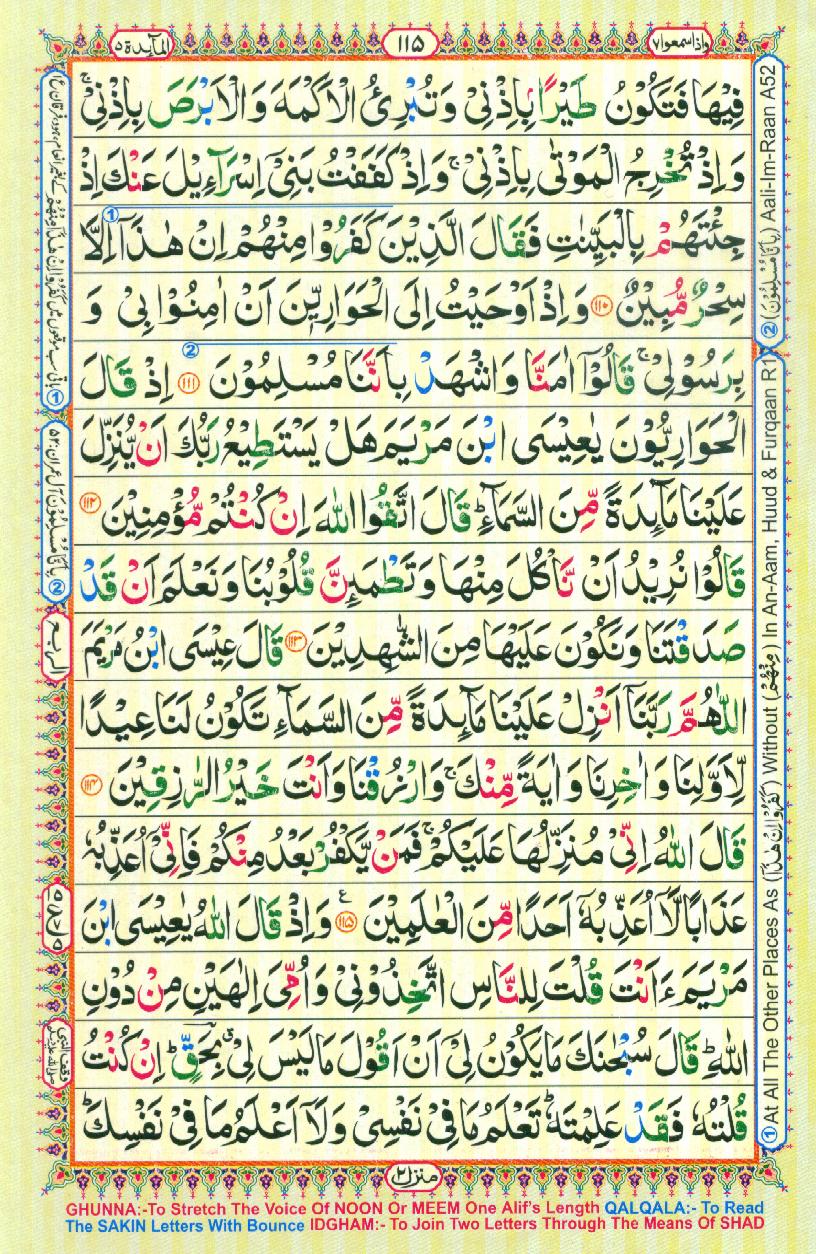 المآئدة ٥
١١٥
واذاسمعوا ٧
فِيْهَا فَتَكُوْنُ طَيْرًۢا بِاِذْنِیْ وَ تُبْرِئُ الْاَكْمَهَ وَ الْاَبْرَصَ بِاِذْنِیْ ۚ
وَ اِذْ تُخْرِجُ الْمَوْتٰی بِاِذْنِیْ ۚ وَ اِذْ كَفَفْتُ بَنِیْۤ اِسْرَآءِیْلَ عَنْكَ اِذْ
جِئْتَهُمْ بِالْبَيِّنٰتِ فَقَالَ الَّذِيْنَ كَفَرُوْا مِنْهُمْ اِنْ هٰذَاۤ اِلَّا
سِحْرٌ مُّبِيْنٌ ﴿١١٠﴾ وَ اِذْ اَوْحَيْتُ اِلَی الْحَوَارِيّٖنَ اَنْ اٰمِنُوْا بِیْ وَ
بِرَسُوْلِیْ ۚ قَالُوْۤا اٰمَنَّا وَ اشْهَدْ بِاَنَّنَا مُسْلِمُوْنَ ﴿١١١﴾ اِذْ قَالَ
الْحَوَارِيُّوْنَ يٰعِيْسَی ابْنَ مَرْيَمَ هَلْ يَسْتَطِيْعُ رَبُّكَ اَنْ يُّنَزِّلَ
عَلَيْنَا مَآئِدَةً مِّنَ السَّمَآءِ ؕ قَالَ اتَّقُوا اللّٰهَ اِنْ كُنْتُمْ مُّؤْمِنِيْنَ ﴿١١٢﴾
قَالُوْا نُرِيْدُ اَنْ نَّاْكُلَ مِنْهَا وَ تَطْمَئِنَّ قُلُوْبُنَا وَ نَعْلَمَ اَنْ قَدْ
صَدَقْتَنَا وَ نَكُوْنَ عَلَيْهَا مِنَ الشّٰهِدِيْنَ ﴿١١٣﴾ قَالَ عِيْسَی ابْنُ مَرْيَمَ
اللّٰهُمَّ رَبَّنَاۤ اَنْزِلْ عَلَيْنَا مَآئِدَةً مِّنَ السَّمَآءِ تَكُوْنُ لَنَا عِيْدًا
لِّاَوَّلِنَا وَ اٰخِرِنَا وَ اٰيَةً مِّنْكَ ۚ وَ ارْزُقْنَا وَ اَنْتَ خَيْرُ الرّٰزِقِيْنَ ﴿١١٤﴾
قَالَ اللّٰهُ اِنِّیْ مُنَزِّلُهَا عَلَيْكُمْ ۚ فَمَنْ يَّكْفُرْ بَعْدُ مِنْكُمْ فَاِنِّیْۤ اُعَذِّبُهٗ
عَذَابًا لَّاۤ اُعَذِّبُهٗۤ اَحَدًا مِّنَ الْعٰلَمِيْنَ ﴿١١٥﴾ ع وَ اِذْ قَالَ اللّٰهُ يٰعِيْسَی ابْنَ
مَرْيَمَ ءَاَنْتَ قُلْتَ لِلنَّاسِ اتَّخِذُوْنِیْ وَ اُمِّیَ اِلٰهَيْنِ مِنْ دُوْنِ
اللّٰهِ ؕ قَالَ سُبْحٰنَكَ مَا يَكُوْنُ لِیْۤ اَنْ اَقُوْلَ مَا لَيْسَ لِیْ ۗ بِحَقٍّ ؕ اِنْ كُنْتُ
قُلْتُهٗ فَقَدْ عَلِمْتَهٗ ؕ تَعْلَمُ مَا فِیْ نَفْسِیْ وَ لَاۤ اَعْلَمُ مَا فِیْ نَفْسِكَ ؕ
① At All The Other Places As (كَفَرُوْٓا اِنْ هٰذَآ) Without (مِنْهُمْ) In An-Aam, Huud & Furqaan R1
② (بِاَنَّا مُسْلِمُوْنَ) Aali-Im-Raan A52
② بِاَنَّا مُسْلِمُوْنَ آل عمران:٥٢
الربع
وقف النبی
منزل ٢
GHUNNA:-To Stretch The Voice Of NOON Or MEEM One Alif's Length QALQALA:- To Read
The SAKIN Letters With Bounce IDGHAM:- To Join Two Letters Through The Means Of SHAD